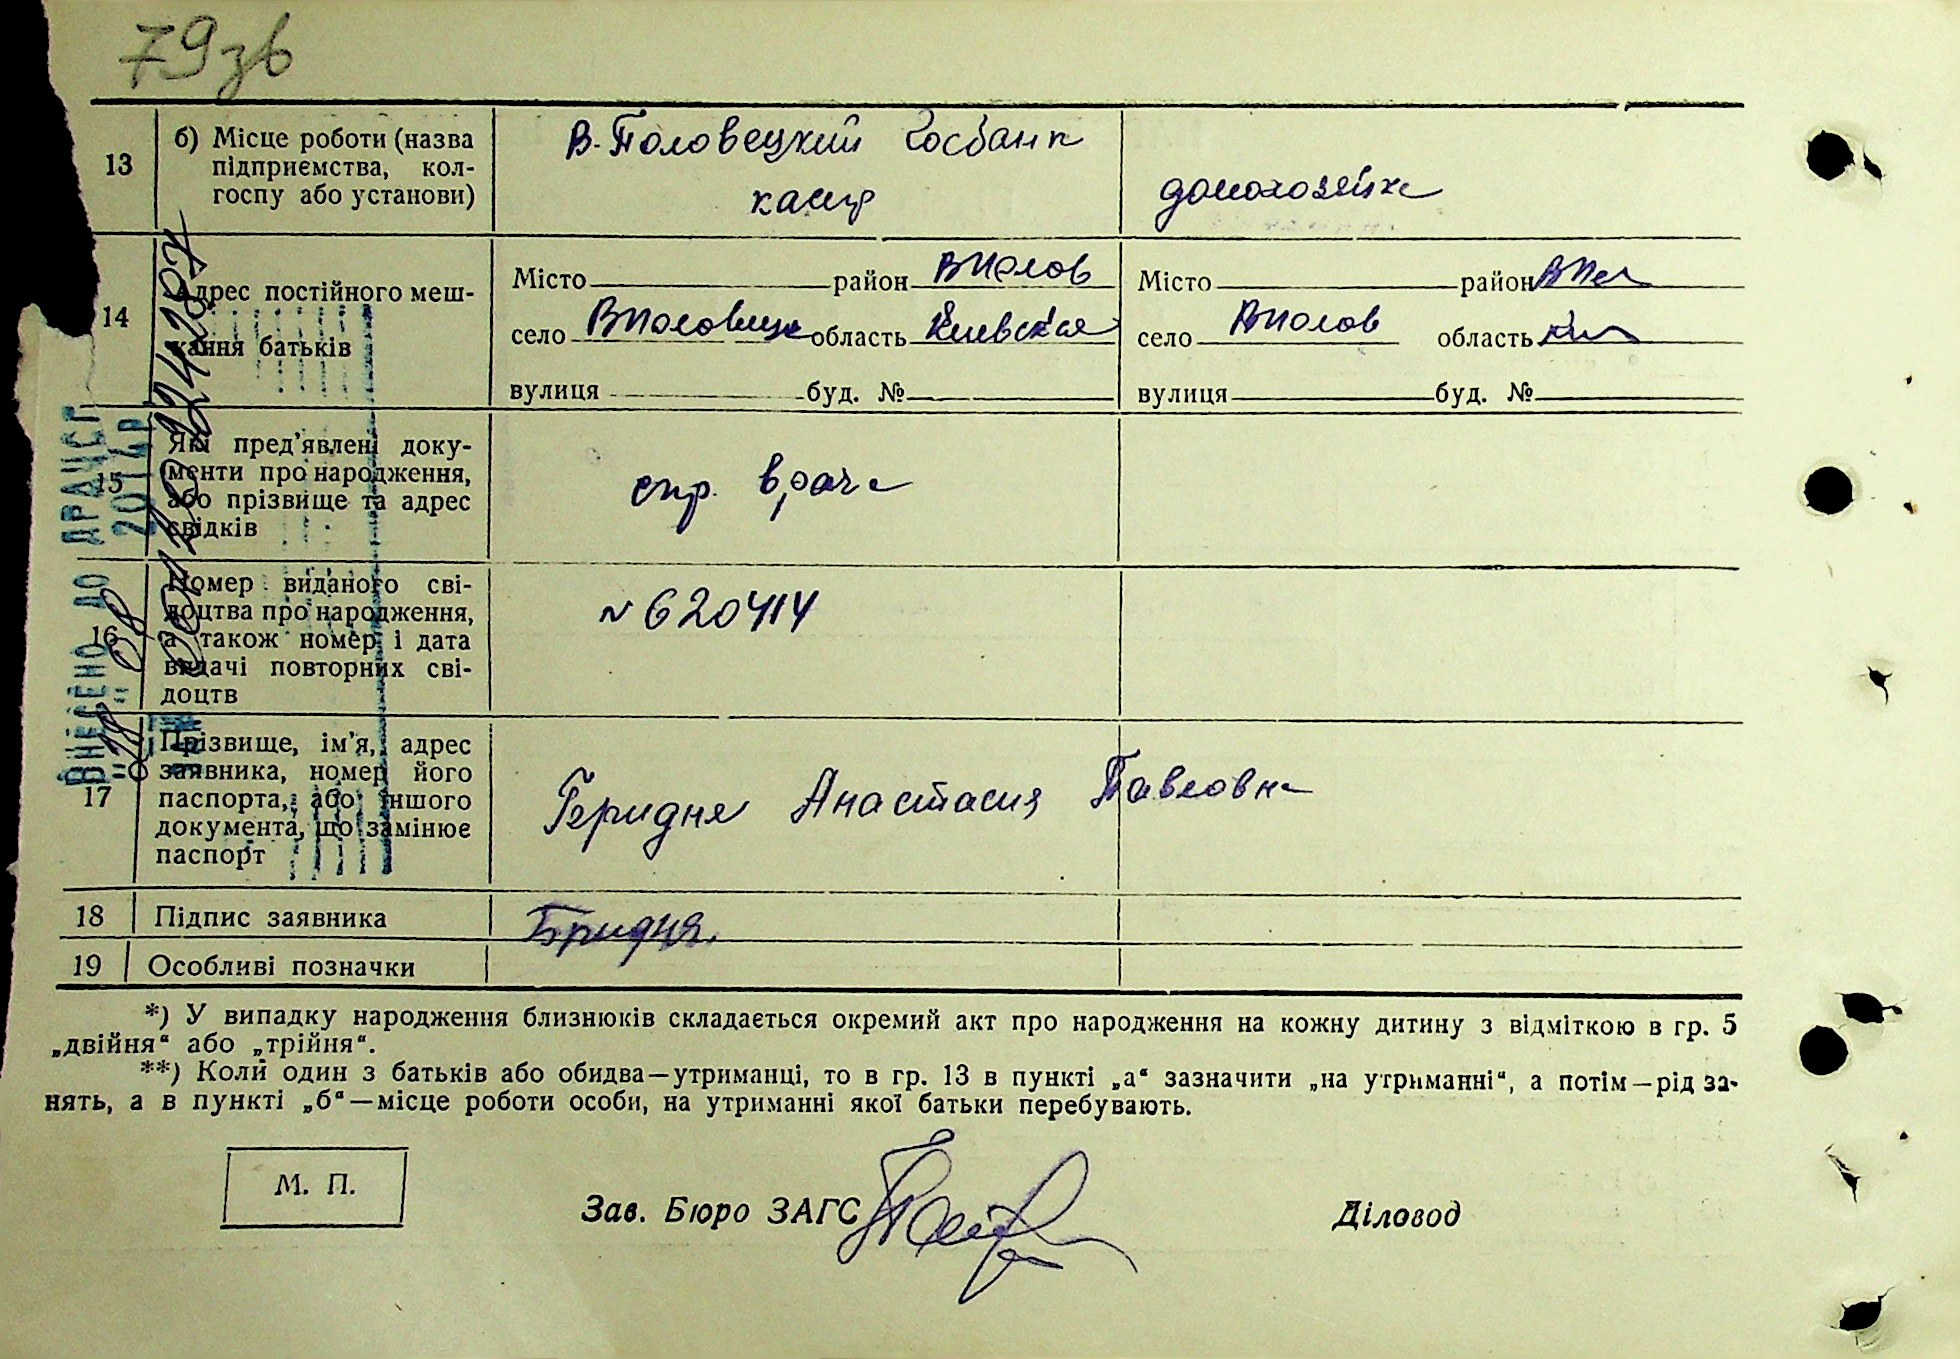 79зв
13
б) Місце роботи (назва
підприємства, кол-
госпу або установи)
В-Половецкий Госбанк
домохозяйка
14
Адрес постійного меш-
кання батьків
Місто район ВПолов
село ВПоловец область Киевская
вулиця буд. №
Місто район ВПол
село ВПолов область Ки
вулиця буд. №
15
Які пред'явлені доку-
менти про народження,
або прізвище та адрес
свідків
спр. врача
16
Номер виданого сві-
доцтва про народження,
а також номер і дата
видачі повторних сві-
доцтв
N 620414
17
Прізвище, ім'я, адрес
заявника, номер його
паспорта, або іншого
документа, що замінює
паспорт
Бридня Анастасия Павловна
18
Підпис заявника
Бридня.
19
Особливі позначки
*) У випадку народження близнюків складається окремий акт про народження на кожну дитину з відміткою в гр. 5
„двійня“ або „трійня“.
**) Коли один з батьків або обидва—утриманці, то в гр. 13 в пункті „а“ зазначити „на утриманні“, а потім—рід за-
нять, а в пункті „б“—місце роботи особи, на утриманні якої батьки перебувають.
М. П.
Зав. Бюро ЗАГС
Діловод
ВНЕСЕНО ДО ДРАЦСГ
2014р